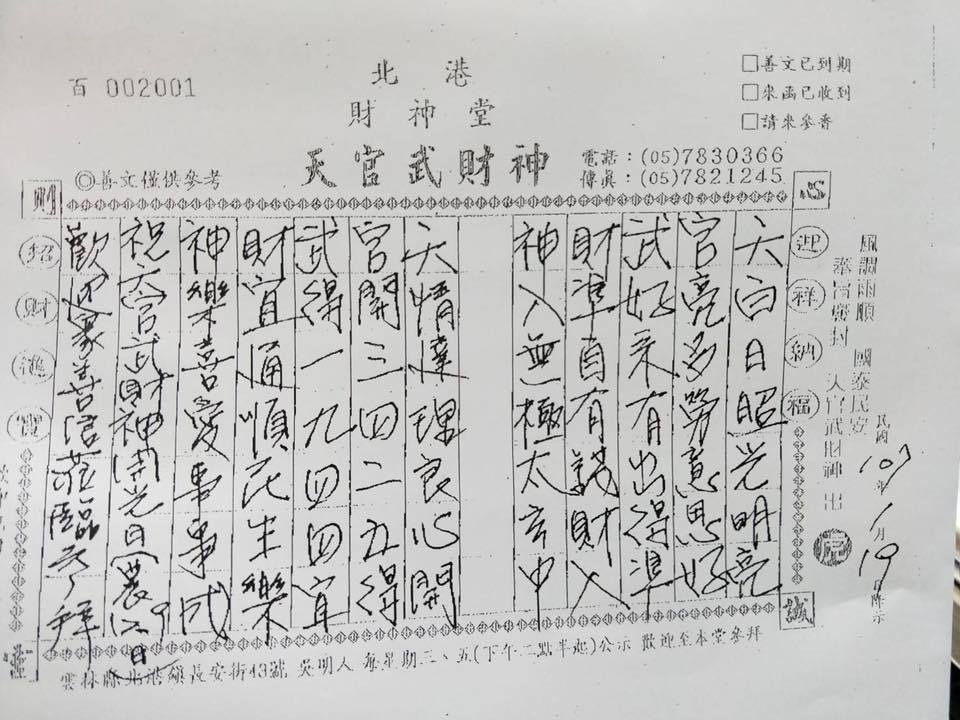 北港
財神堂
天官武財神
百 002001
◎善文僅供參考
電話：(05)7830366
傳眞：(05)7821245
□善文已到期
□來函已收到
□請來參香
風調雨順 國泰民安
奉旨 封 天官武財神 出
民國107年1月19日降示
心
誠
則
靈
迎祥納福
天白日昭光明亮
官亮多勞意思好
武好來有出得準
財準自有錢財入
神入無極太玄中
天情達理良心開
官開三四二五得
武得一九四四宜
財宜通順民生樂
神樂喜愛事事成
祝天官武財神開光日農
歡迎眾善信蒞臨參拜
招財進寶
雲林縣北港鎮長安街43號 吳明人 每星期三、五(下午二點半起)公示 歡迎至本堂參拜